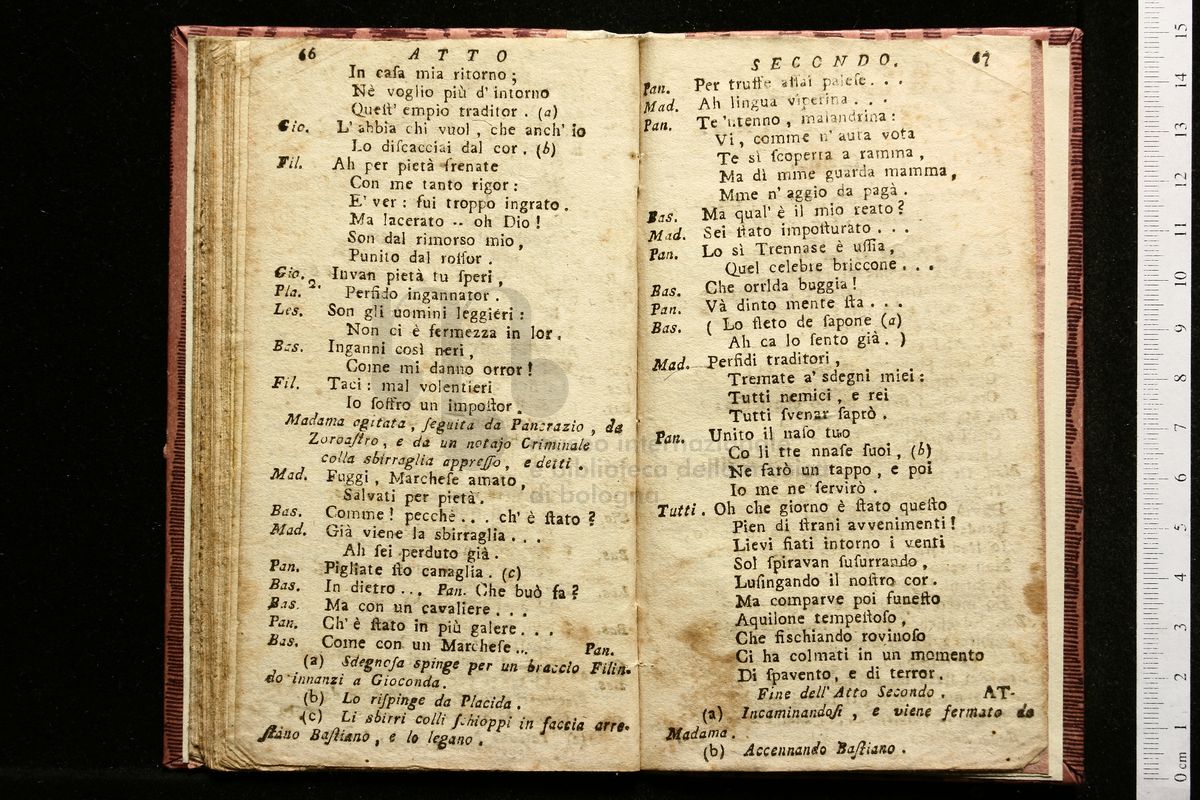 66 ATTO
In caſa mia ritorno ;
Nè voglio più d' intorno
Queſt' empio traditor . (a)
Gio. L' abbia chi vuol , che anch' io
Lo diſcacciai dal cor . (b)
Fil. Ah per pietà frenate
Con me tanto rigor :
E' ver : fui troppo ingrato .
Ma lacerato .. oh Dio !
Son dal rimorso mio ,
Punito dal roſſor .
Gio. Invan pietà tu ſperi ,
Pla. 2. Perfido ingannator .
Les. Son gli uomini leggieri :
Non ci è fermezza in lor .
Bas. Inganni così neri ,
Come mi danno orror !
Fil. Taci : mal volentieri
Io ſoffro un impoſtor .
Madama agitata , ſeguita da Pancrazio , da
Zoroaſtro , e da un notajo Criminale
colla sbirraglia appreſſo , e detti .
Mad. Fuggi , Marcheſe amato ,
Salvati per pietà .
Bas. Comme ! pecchè . . . ch' è ſtato ?
Mad. Già viene la sbirraglia . . .
Ah ſei perduto già .
Pan. Pigliate ſto canaglia . (c)
Bas. In dietro ... Pan. Che buò fa ?
Bas. Ma con un cavaliere . . .
Pan. Ch' è ſtato in più galere . . .
Bas. Come con un Marcheſe ... Pan.
(a) Sdegnoſa spinge per un braccio Filin-
do innanzi a Gioconda .
(b) Lo riſpinge da Placida .
(c) Li sbirri colli ſchioppi in faccia arre-
ſtano Baſtiano , e lo legano .
SECONDO. 67
Pan. Per truffe aſſai paleſe . . .
Mad. Ah lingua viperina . . .
Pan. Te 'ntenno , malandrina :
Vi , comme n' auta vota
Te sì ſcoperta a ramma ,
Ma dì mme guarda mamma ,
Mme n' aggio da pagà .
Bas. Ma qual' è il mio reato ?
Mad. Sei ſtato impoſturato . . .
Pan. Lo sì Trennase è uſſia ,
Quel celebre briccone . . .
Bas. Che orrIda buggia !
Pan. Và dinto mente ſta . . .
Bas. ( Lo fleto de ſapone (a)
Ah ca lo ſento già . )
Mad. Perfidi traditori ,
Tremate a' sdegni miei :
Tutti nemici , e rei
Tutti ſvenar ſaprò .
Pan. Unito il naſo tuo
Co li tte nnaſe ſuoi , (b)
Ne farò un tappo , e poi
Io me ne ſervirò .
Tutti . Oh che giorno è ſtato queſto
Pien di ſtrani avvenimenti !
Lievi fiati intorno i venti
Sol ſpiravan ſuſurrando ,
Luſingando il noſtro cor .
Ma comparve poi funeſto
Aquilone tempeſtoſo ,
Che fischiando rovinoſo
Ci ha colmati in un momento
Di ſpavento , e di terror .
Fine dell' Atto Secondo . AT-
(a) Incaminandoſi , e viene fermato da
Madama .
(b) Accennando Baſtiano .